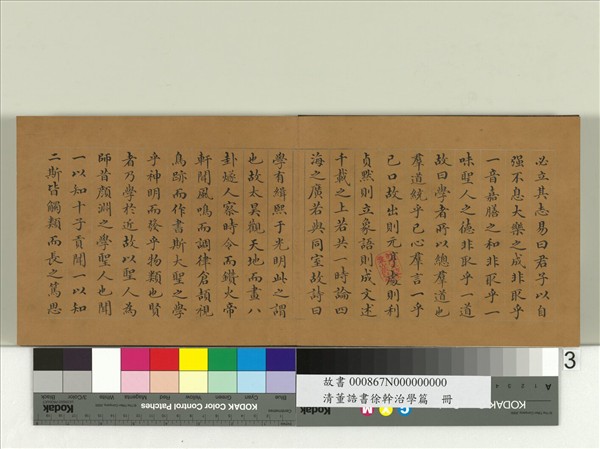 必立其志易曰君子以自
強不息大樂之成非取乎
一音嘉膳之和非取乎一
味聖人之德非取乎一道
故曰學者所以總羣道也
羣道統乎己心羣言一乎
己口故出則元亨處則利
貞默則立象語則成文述
千載之上若共一時論四
海之廣若與同室故詩曰
學有緝熙于光明此之謂
也故太昊觀天地而畫八
卦燧人察時令而鑽火帝
軒聞鳳鳴而調律倉頡視
鳥跡而作書斯大聖之學
乎神明而發乎物類也賢
者乃學於近故以聖人為
師昔顏淵之學聖人也聞
一以知十子貢聞一以知
二斯皆觸類而長之篤思
3
故書 000867N000000000
清董誥書徐幹治學篇 冊
Black 3/Color White Magenta Red Yellow Green Cyan Blue
Kodak KODAK Color Control Patches
Kodak
A
C Y M